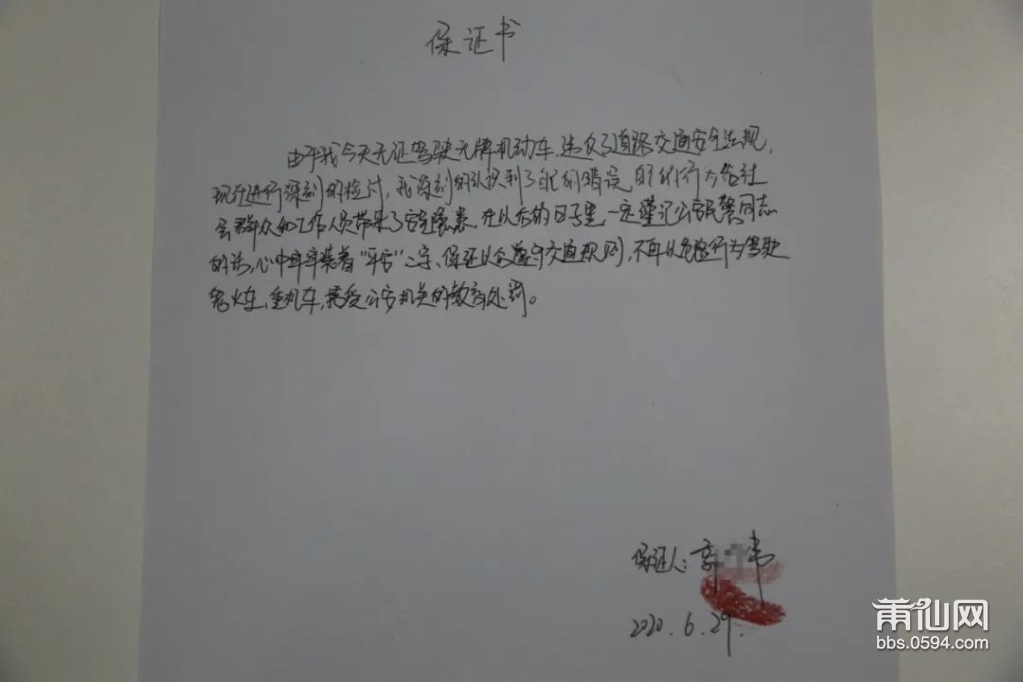 保证书
由于我今天无证驾驶无牌机动车,违反了道路交通安全法规,
现在进行深刻的检讨,我深刻的认识到了自己的错误,自己的行为给社
会群众和工作人员带来了安全隐患。在以后的日子里,一定谨记公安民警同志
的话,心中牢牢装着“平安”二字、保证以后遵守交通规则,不再以危险行为驾驶
鬼火车,重机车,接受公安机关的教育处罚。
保证人:郭 伟
2020.6.29.
莆仙网
bbs.0594.com